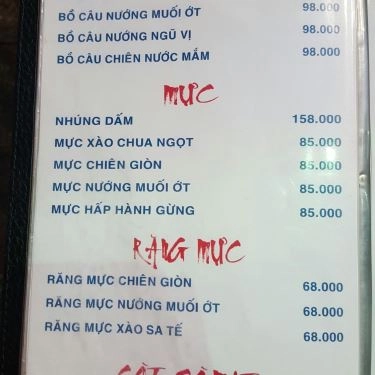 BỒ CÂU NƯỚNG MUỐI ỚT 98.000
BỒ CÂU NƯỚNG NGŨ VỊ 98.000
BỒ CÂU CHIÊN NƯỚC MẮM 98.000
MỰC
NHÚNG DẤM 158.000
MỰC XÀO CHUA NGỌT 85.000
MỰC CHIÊN GIÒN 85.000
MỰC NƯỚNG MUỐI ỚT 85.000
MỰC HẤP HÀNH GỪNG 85.000
RĂNG MỰC
RĂNG MỰC CHIÊN GIÒN 68.000
RĂNG MỰC NƯỚNG MUỐI ỚT 68.000
RĂNG MỰC XÀO SA TẾ 68.000